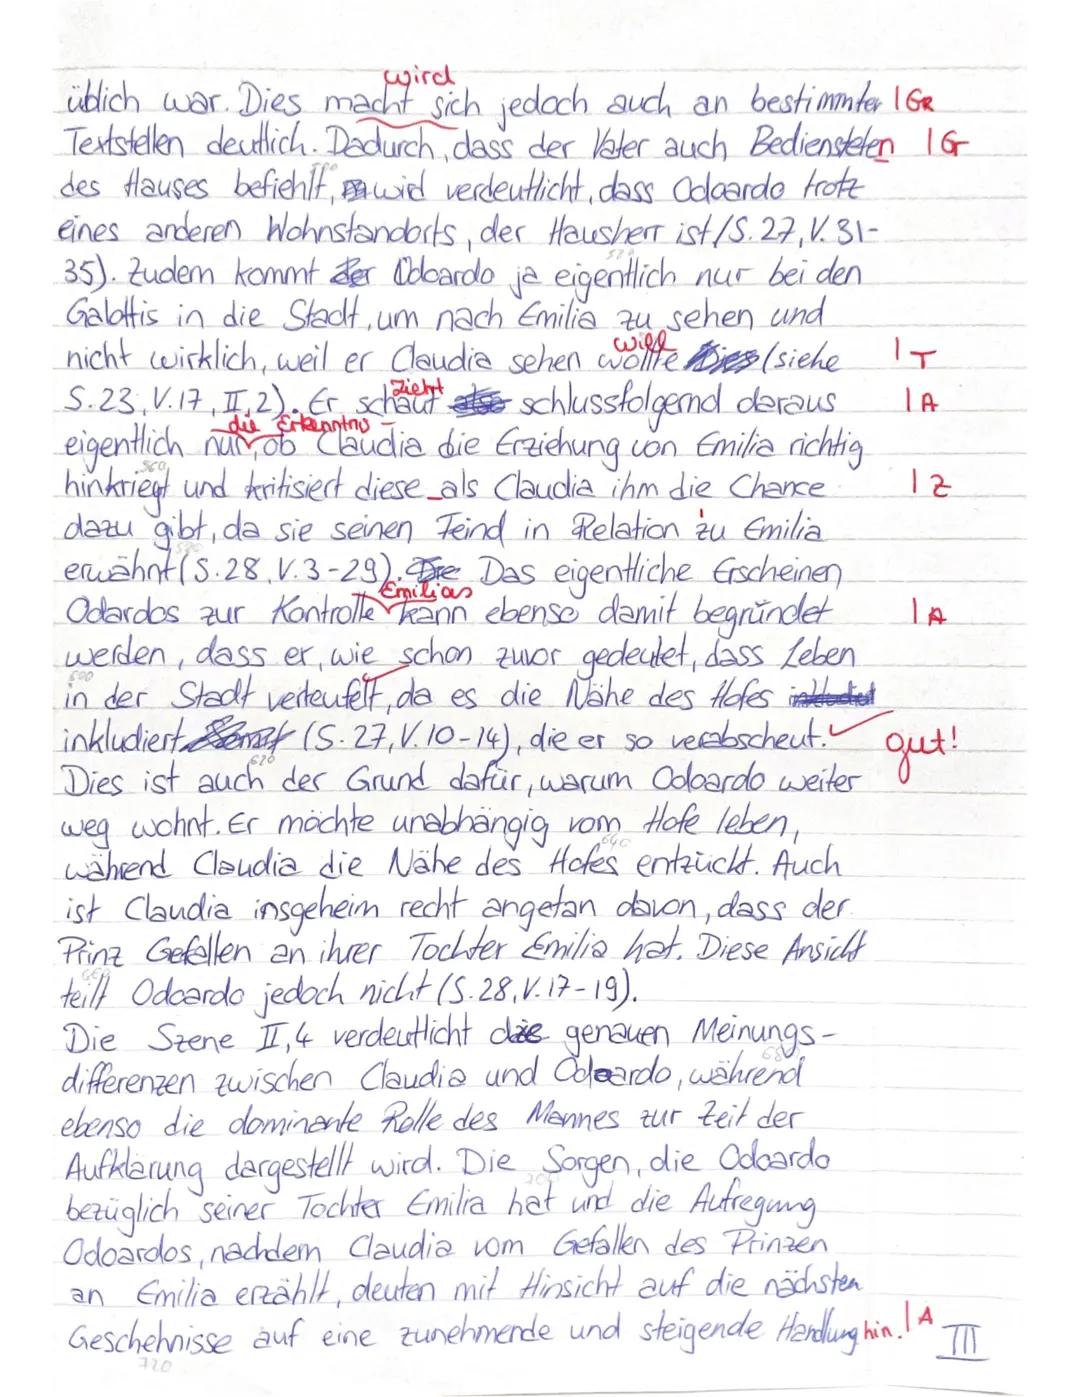 wird
üblich war. Dies macht sich jedoch auch an bestimmter | GR
Textstellen deutlich. Dadurch, dass der Vater auch Bediensteten | G
des Hauses befiehlt, wird verdeutlicht, dass Odoardo trotz
eines anderen Wohnstandorts, der Hausherr ist (S. 27, V. 31-
35). Zudem kommt der Odoardo ja eigentlich nur bei den
Galottis in die Stadt, um nach Emilia zu sehen und
will
nicht wirklich, weil er Claudia sehen wollte Dies (siehe | T
zieht
S. 23, V. 17, II, 2). Er schaut also schlussfolgernd daraus | A
die Erkenntnis
eigentlich nur, ob Claudia die Erziehung von Emilia richtig
560
hinkriegt und kritisiert diese als Claudia ihm die Chance | Z
dazu gibt, da sie seinen Feind in Relation zu Emilia
erwähnt (S. 28, V. 3-29). Die Das eigentliche Erscheinen
Emilias
Odardos zur Kontrolle kann ebenso damit begründet | A
werden, dass er, wie schon zuvor gedeutet, dass Leben
600
in der Stadt verteufelt, da es die Nähe des Hofes
inkludiert (S. 27, V. 10-14), die er so verabscheut. gut!
620
Dies ist auch der Grund dafür, warum Odoardo weiter
weg wohnt. Er möchte unabhängig vom Hofe leben,
640
während Claudia die Nähe des Hofes entzückt. Auch
ist Claudia insgeheim recht angetan davon, dass der
Prinz Gefallen an ihrer Tochter Emilia hat. Diese Ansicht
660
teilt Odoardo jedoch nicht (S. 28, V. 17-19).
Die Szene II, 4 verdeutlicht die genauen Meinungs-
680
differenzen zwischen Claudia und Odoardo, während
ebenso die dominante Rolle des Mannes zur Zeit der
Aufklärung dargestellt wird. Die Sorgen, die Odoardo
700
bezüglich seiner Tochter Emilia hat und die Aufregung
Odoardos, nachdem Claudia vom Gefallen des Prinzen
an Emilia erzählt, deuten mit Hinsicht auf die nächsten
Geschehnisse auf eine zunehmende und steigende Handlung hin. | A III
720